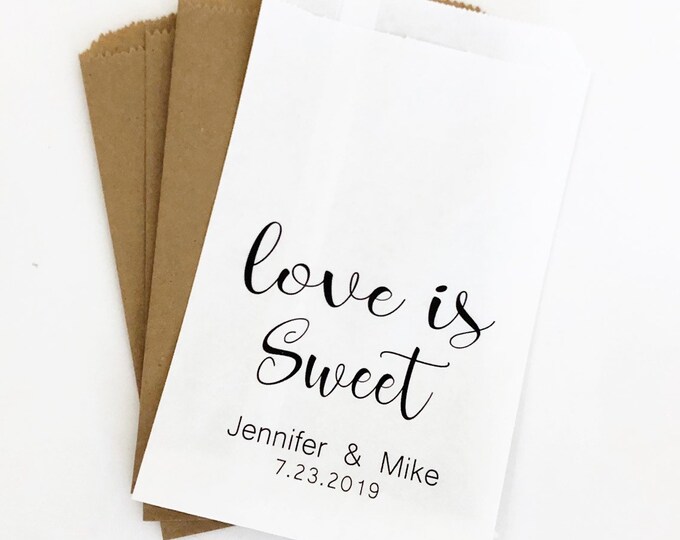 love is
Sweet
Jennifer & Mike
7.23.2019